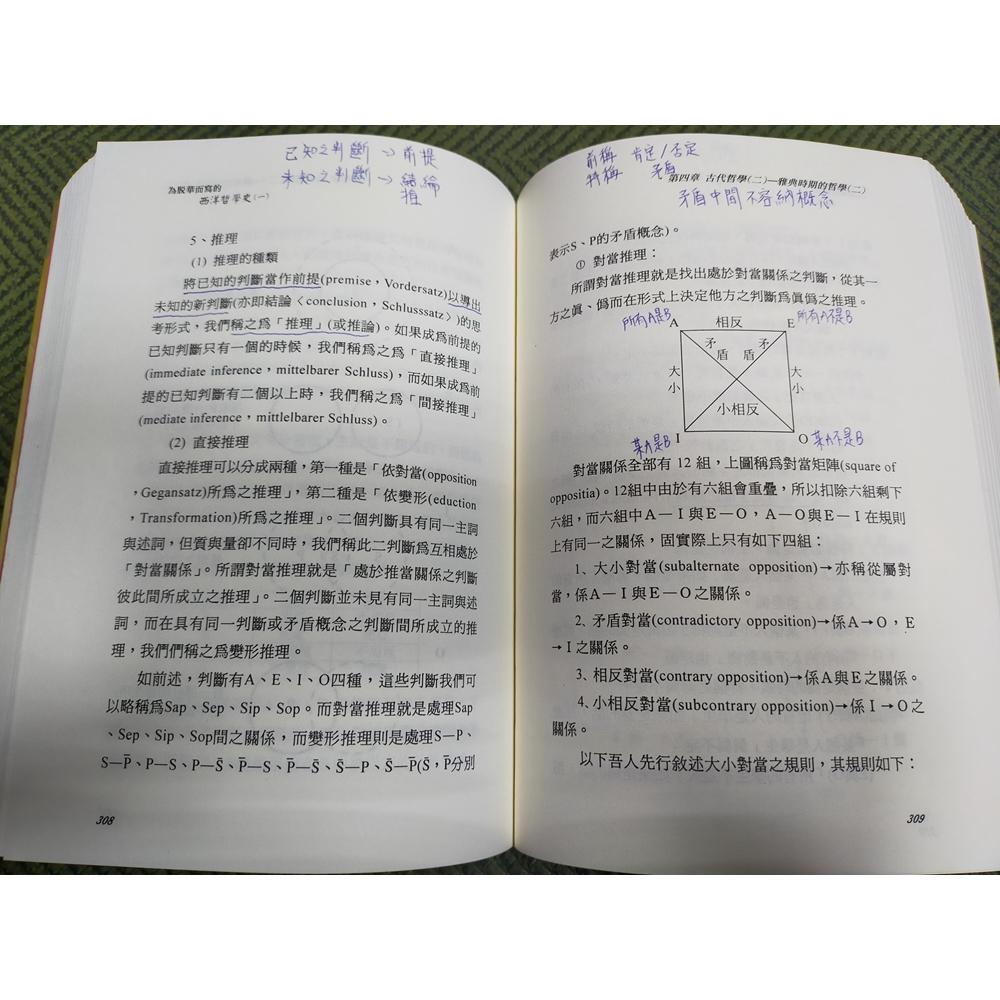 已知之判斷→前提
未知之判斷→結論
推
為脫華而寫的
西洋哲學史(一)
5、推理
(1) 推理的種類
將已知的判斷當作前提(premise，Vordersatz)以導出
未知的新判斷(亦即結論〈conclusion，Schlusssatz〉)的思
考形式，我們稱之爲「推理」(或推論)。如果成爲前提的
已知判斷只有一個的時候，我們稱爲之爲「直接推理」
(immediate inference，mittelbarer Schluss)，而如果成爲前
提的已知判斷有二個以上時，我們稱之爲「間接推理」
(mediate inference，mittlelbarer Schluss)。
(2) 直接推理
直接推理可以分成兩種，第一種是「依對當(opposition
，Gegansatz)所爲之推理」，第二種是「依變形(eduction
，Transformation)所爲之推理」。二個判斷具有同一主詞
與述詞，但質與量卻不同時，我們稱此二判斷爲互相處於
「對當關係」。所謂對當推理就是「處於推當關係之判斷
彼此間所成立之推理」。二個判斷並未見有同一主詞與述
詞，而在具有同一判斷或矛盾概念之判斷間所成立的推
理，我們們稱之爲變形推理。
如前述，判斷有A、E、I、O四種，這些判斷我們可
以略稱爲Sap、Sep、Sip、Sop。而對當推理就是處理Sap
、Sep、Sip、Sop間之關係，而變形推理則是處理S—P、
S—P̄、P—S、P—S̄、P̄—S、P̄—S̄、S̄—P、S̄—P̄(S̄，P̄分別
308
前稱 肯定/否定
特稱 矛盾
第四章 古代哲學(二)—雅典時期的哲學(二)
矛盾中間不容納概念
表示S、P的矛盾概念)。
① 對當推理：
所謂對當推理就是找出處於對當關係之判斷，從其一
方之眞、僞而在形式上決定他方之判斷爲眞僞之推理。
所有A是B A 相反 E 所有A不是B
矛 矛
盾 盾
大 大
小 小
小相反
某A是B I O 某A不是B
對當關係全部有 12 組，上圖稱爲對當矩陣(square of
oppositia)。12組中由於有六組會重疊，所以扣除六組剩下
六組，而六組中A—I與E—O，A—O與E—I在規則
上有同一之關係，固實際上只有如下四組：
1、大小對當(subalternate opposition)→亦稱從屬對
當，係A—I與E—O之關係。
2、矛盾對當(contradictory opposition)→係A→O，E
→I之關係。
3、相反對當(contrary opposition)→係A與E之關係。
4、小相反對當(subcontrary opposition)→係I→O之
關係。
以下吾人先行敘述大小對當之規則，其規則如下：
309